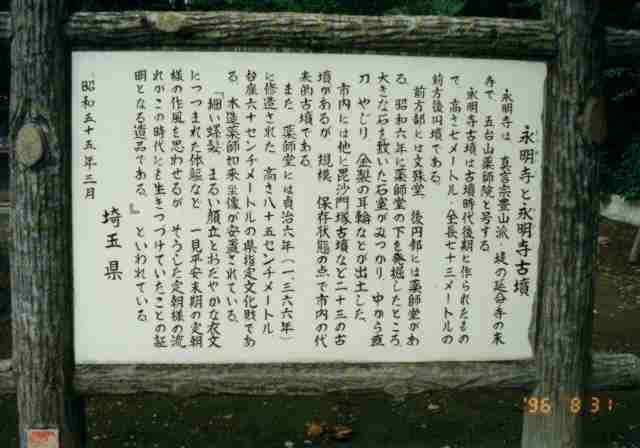 永明寺と永明寺古墳
永明寺は、真言宗豊山派・堤の延命寺の末
寺で、五台山薬師院と号する。
永明寺古墳は古墳時代後期に作られたもの
で、高さ七メートル・全長七十三メートルの
前方後円墳である。
前方部には文殊堂、後円部には薬師堂があ
る。昭和六年に薬師堂の下を発掘したところ、
大きな石を敷いた石室がみつかり、中から直
刀、やじり、金製の耳輪などが出土した。
市内には他に毘沙門塚古墳など二十三の古
墳があるが、規模、保存状態の点で市内の代
表的古墳である。
また、薬師堂には貞治六年(一、三六六年)
に修造された、高さ八十五センチメートル、
台座六十センチメートルの県指定文化財であ
る、木造薬師如来坐像が安置されている。
「細い螺髪、まるい顔立とおだやかな衣文
につつまれた体躯など、一見平安末期の定朝
様の作風を思わせるが、そうした定朝様の流
れがこの時代にも生きつづけていたことの証
明となる遺品である。』といわれている。
昭和五十五年三月
埼玉県
'96 8 31